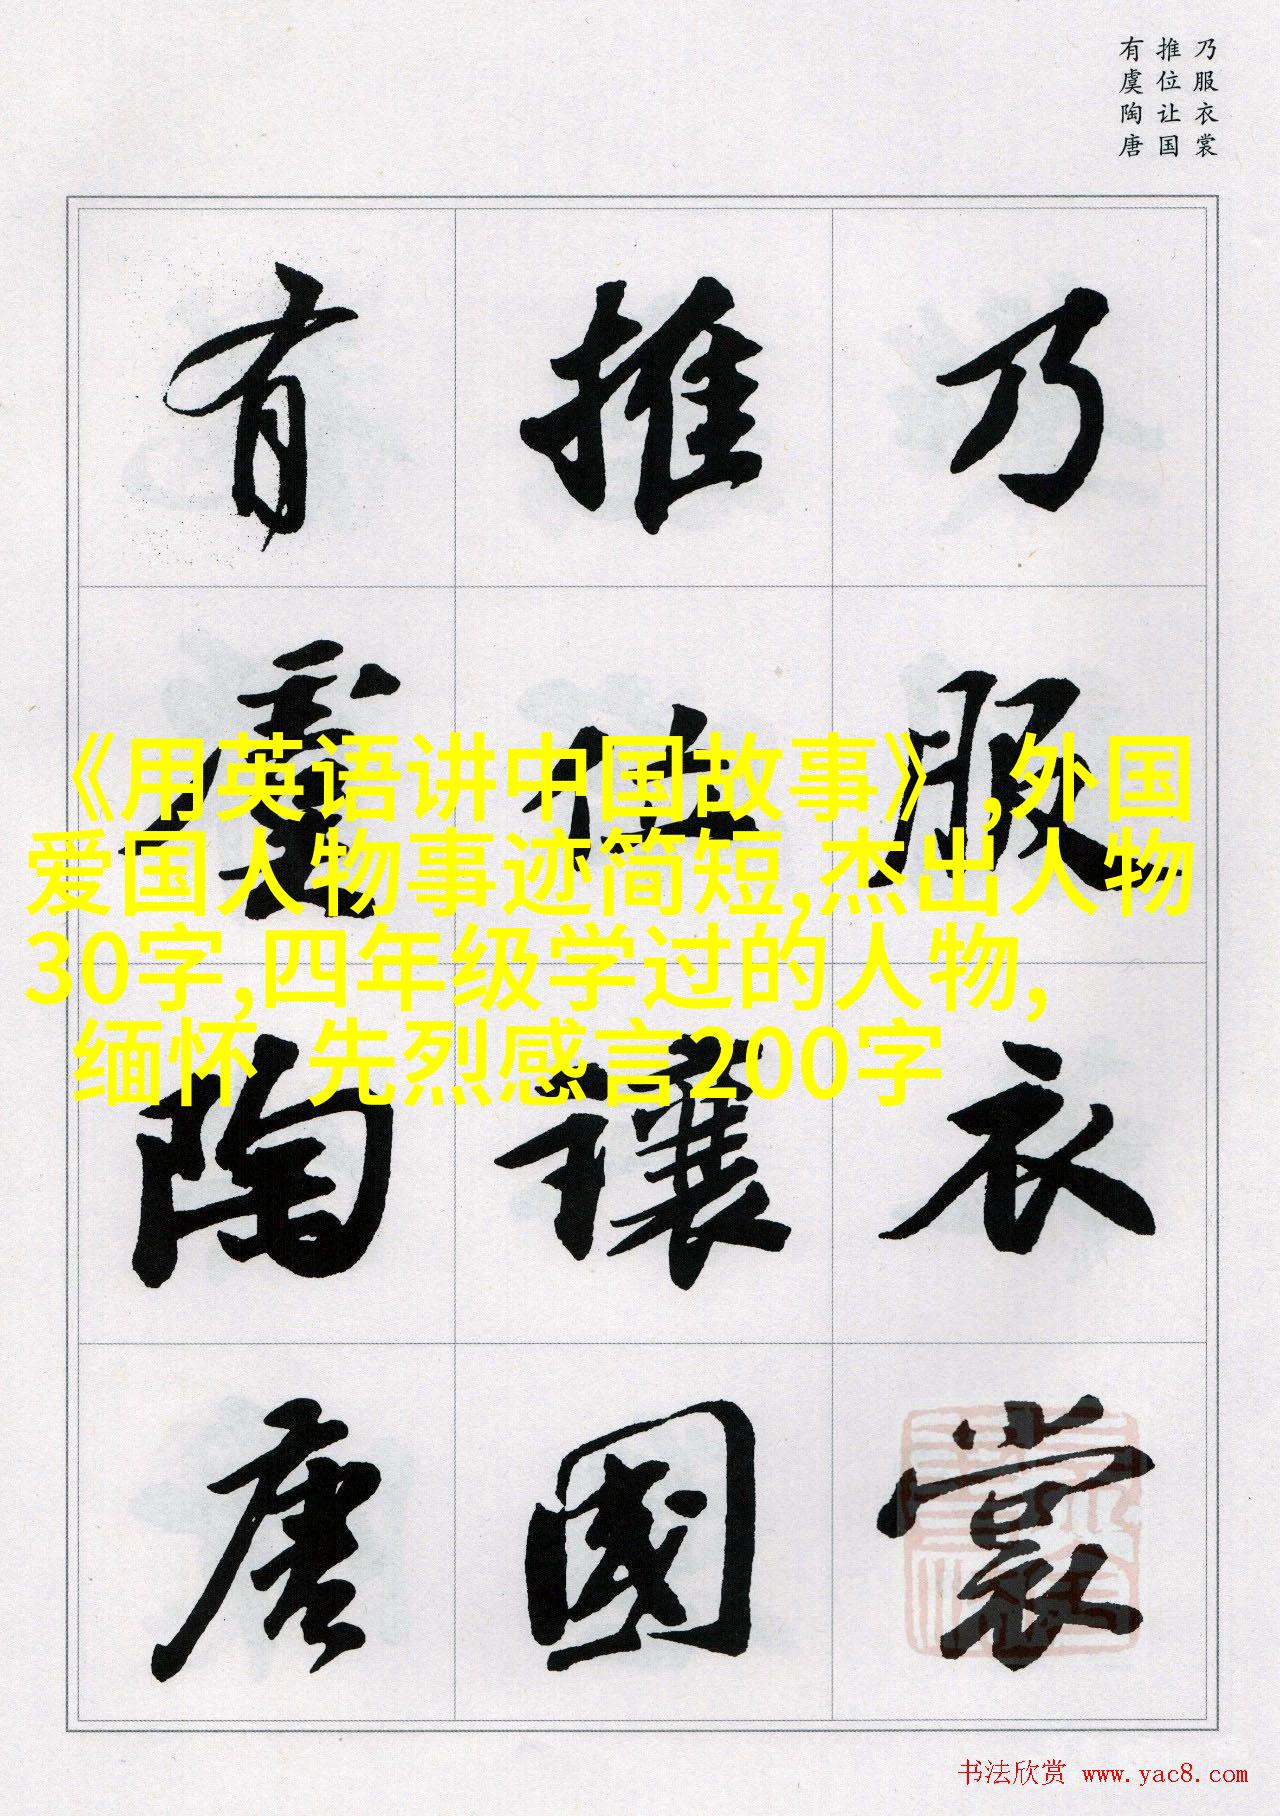 乃服衣裳
推位让国
有虞陶唐
乃服衣裳
推位讓國
有虞陶唐
《用英语讲中国故事》,外国
爱国人物事迹简短,杰出人物
30字,四年级学过的人物,
缅怀 先烈感言200字
书法欣赏 www.yac8.com